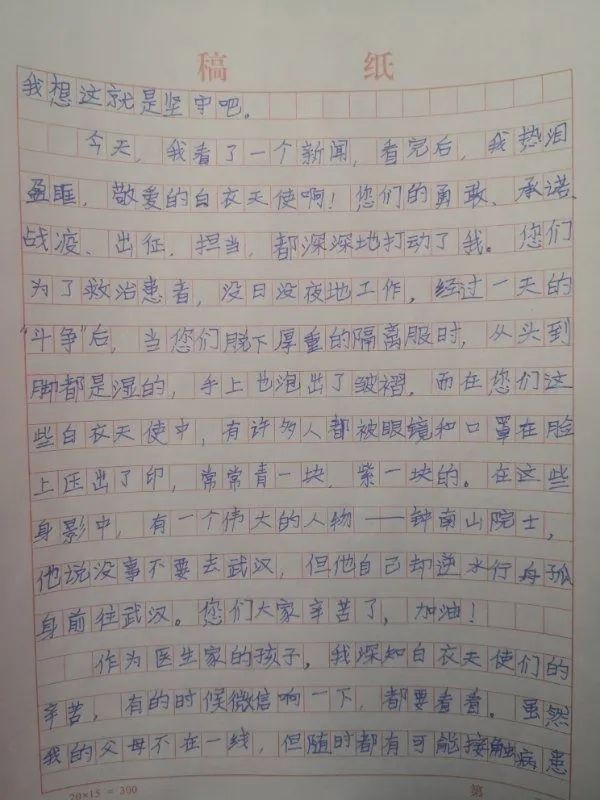 稿 纸
我想这就是坚守吧。
今天，我看了一个新闻，看完后，我热泪
盈眶，敬爱的白衣天使啊！您们的勇敢、承诺、
战疫、出征、担当，都深深地打动了我。您们
为了救治患者，没日没夜地工作，经过一天的
“斗争”后，当您们脱下厚重的隔离服时，从头到
脚都是湿的，手上也泡出了皱褶，而在您们这
些白衣天使中，有许多人都被眼镜和口罩在脸
上压出了印，常常青一块，紫一块的。在这些
身影中，有一个伟大的人物——钟南山院士，
他说没事不要去武汉，但他自己却逆水行舟孤
身前往武汉。您们大家辛苦了，加油！
作为医生家的孩子，我深知白衣天使们的
辛苦，有的时候微信响一下，都要看看。虽然
我的父母不在一线，但随时都有可能接触病患
20×15=300 第